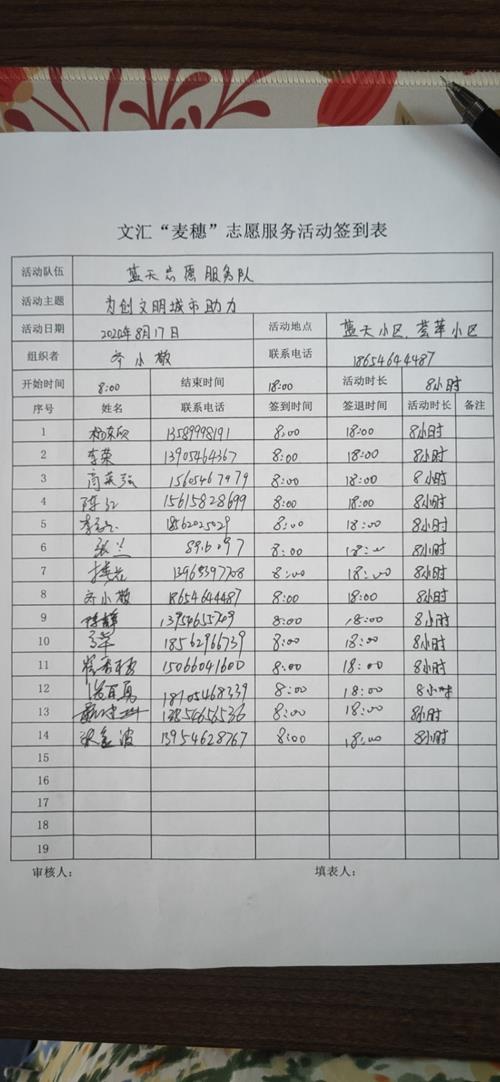 文汇“麦穗”志愿服务活动签到表
活动队伍 蓝天志愿服务队
活动主题 为创文明城市助力
活动日期 2020年8月17日 活动地点 蓝天小区、荟萃小区
组织者 齐小敬 联系电话 18654644487
开始时间 8:00 结束时间 18:00 活动时长 8小时
序号 姓名 联系电话 签到时间 签退时间 活动时长 备注
1 13589998191 8:00 18:00 8小时
2 李荣 13905464367 8:00 18:00 8小时
3 15605467979 8:00 18:00 8小时
4 陈红 15615828699 8:00 18:00 8小时
5 18562025029 8:00 18:00 8小时
6 张兰 8:00 18:00 8小时
7 13965397708 8:00 18:00 8小时
8 齐小敬 18654644487 8:00 18:00 8小时
9 陈静 13954655709 8:00 18:00 8小时
10 18562966739 8:00 18:00 8小时
11 15066041600 8:00 18:00 8小时
12 18105468339 8:00 18:00 8小时
13 8:00 18:00 8小时
14 13954628767 8:00 18:00 8小时
15
16
17
18
19
审核人： 填表人：